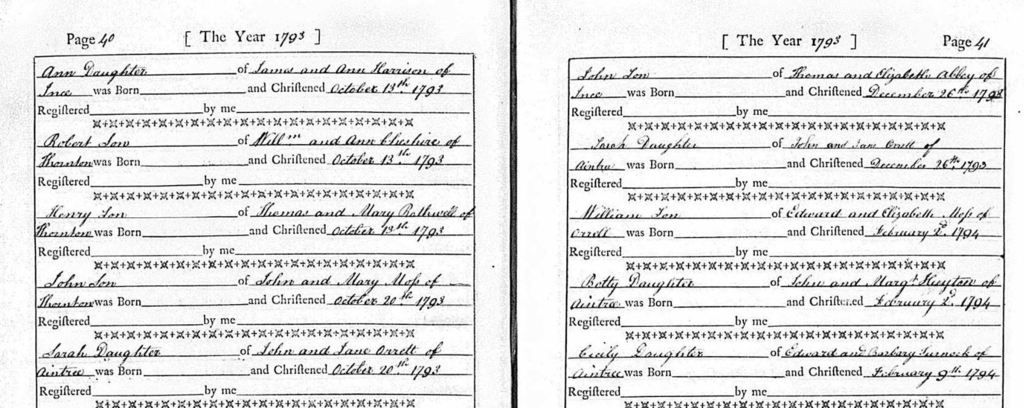 Page 40 [ The Year 1793 ]
Ann Daughter of James and Ann Harrison of
Ince was Born and Chriſtened October 13th 1793
Regiſtered by me
Robert Son of Willm and Ann Cheshire of
Thornton was Born and Chriſtened October 13th 1793
Regiſtered by me
Henry Son of Thomas and Mary Rothwell of
Thornton was Born and Chriſtened October 13th 1793
Regiſtered by me
John Son of John and Mary Moſs of
Thornton was Born and Chriſtened October 20th 1793
Regiſtered by me
Sarah Daughter of John and Jane Orrett of
Aintree was Born and Chriſtened October 20th 1793
Regiſtered by me
[ The Year 1793 ] Page 41
John Son of Thomas and Elizabeth Abbey of
Ince was Born and Chriſtened December 26th 1793
Regiſtered by me
Sarah Daughter of John and Jane Orrett of
Aintree was Born and Chriſtened December 26th 1793
Regiſtered by me
William Son of Edward and Elizabeth Moſs of
Orrell was Born and Chriſtened February 2d 1794
Regiſtered by me
Betty Daughter of John and Margt Heyton of
Aintree was Born and Chriſtened February 2d 1794
Regiſtered by me
Cecily Daughter of Edward and Barbary Furnock of
Aintree was Born and Chriſtened February 9th 1794
Regiſtered by me